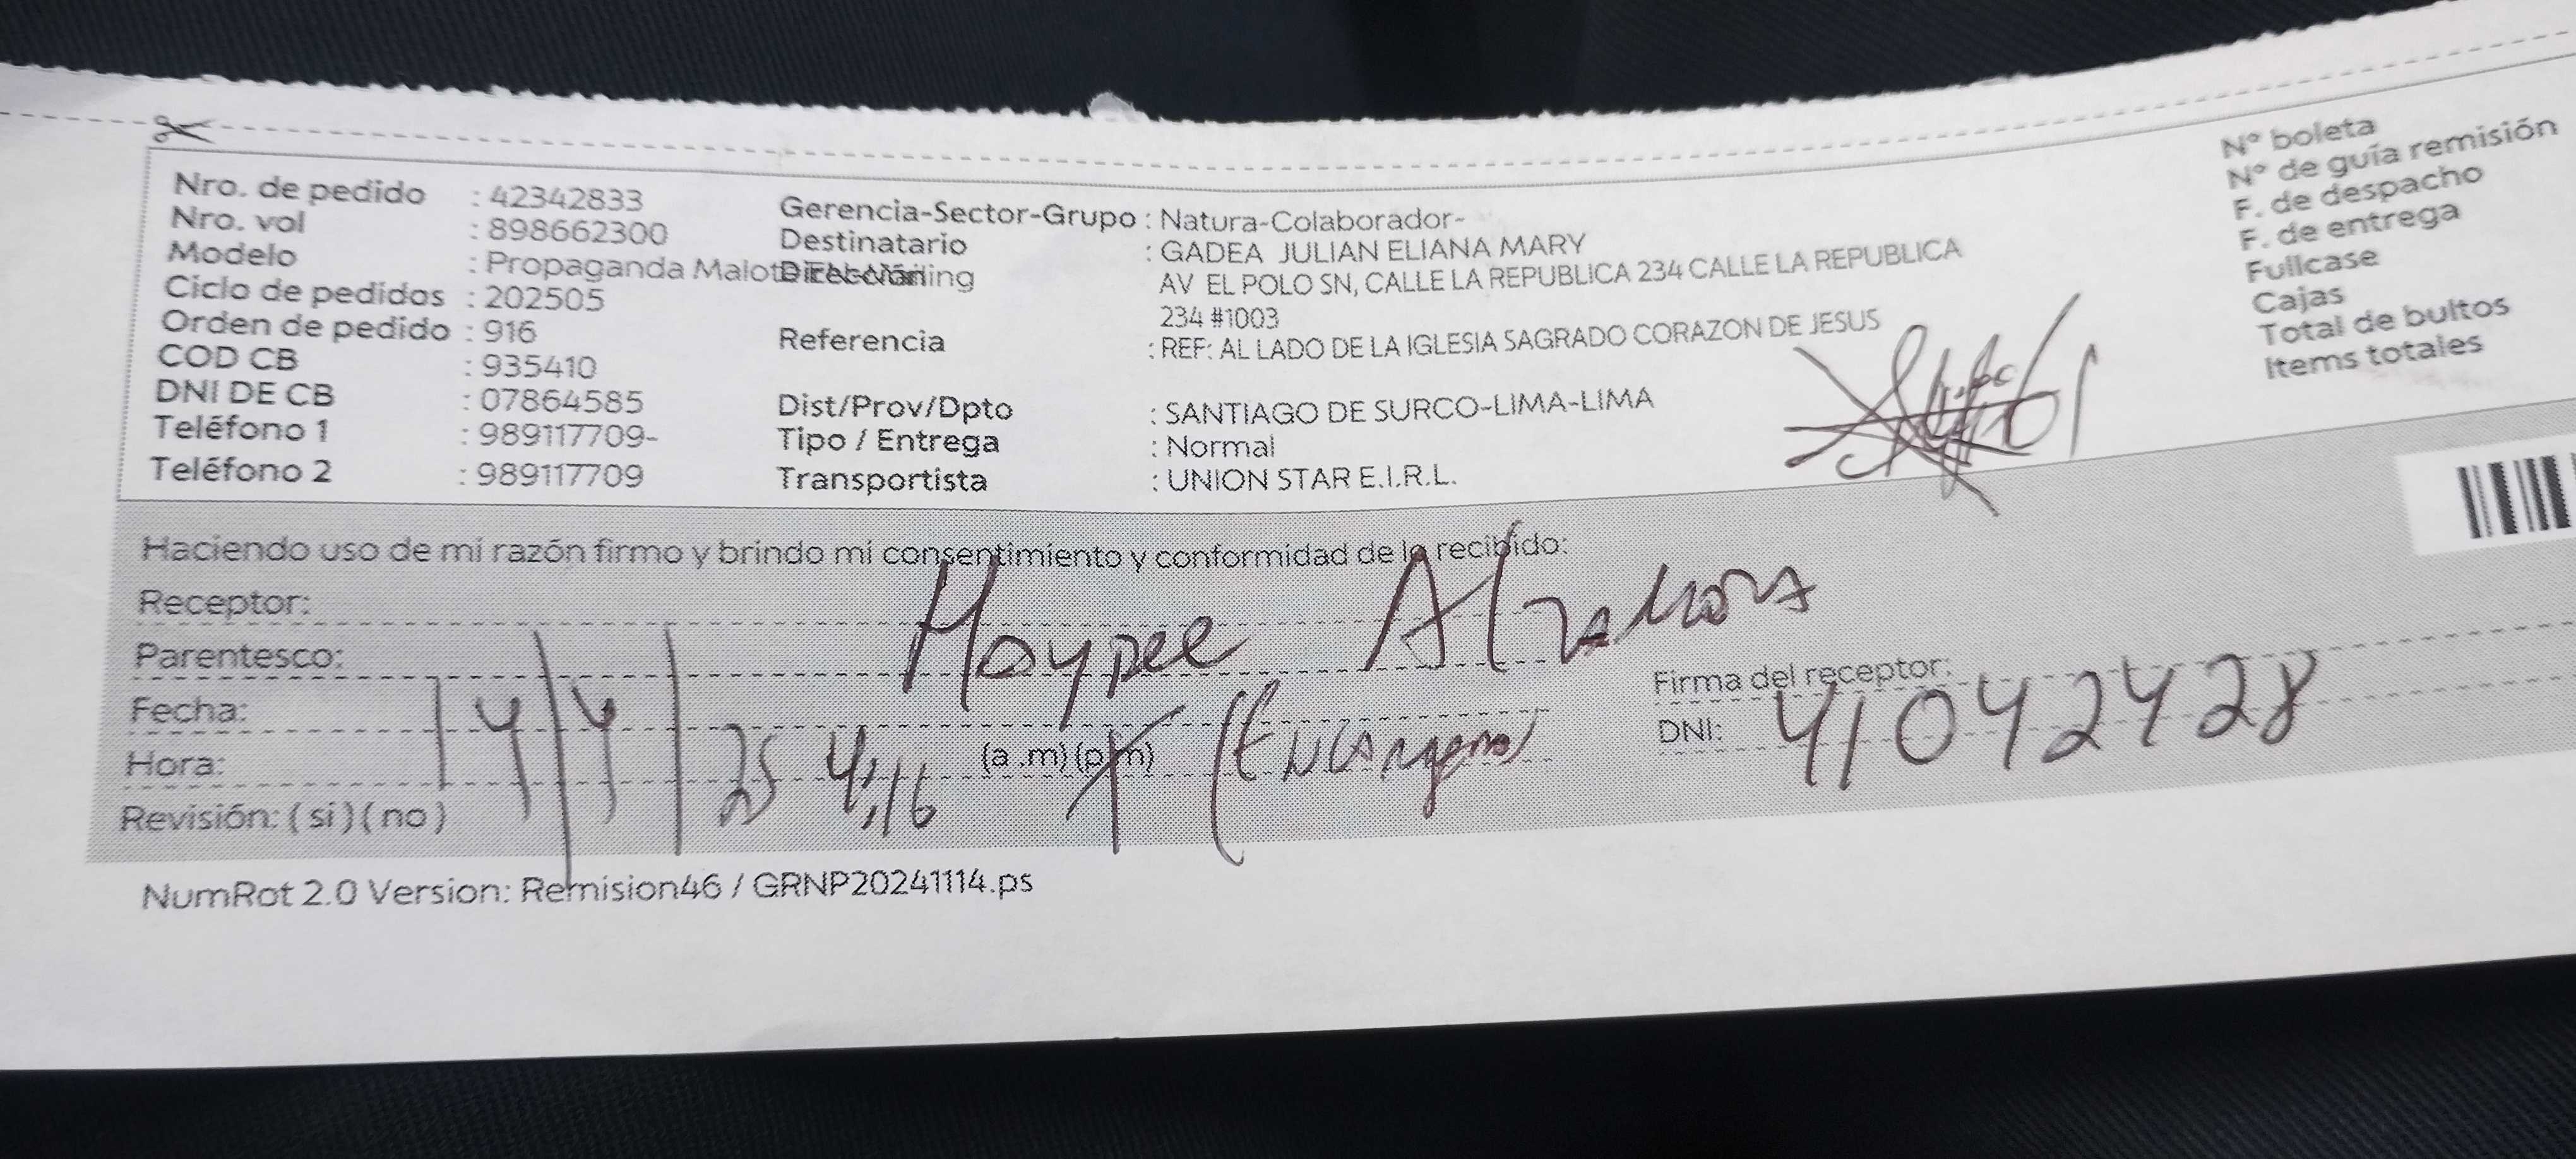 Nro. de pedido : 42342833
Nro. vol : 898662300
Modelo : Propaganda
Ciclo de pedidos : 202505
Orden de pedido : 916
COD CB : 935410
DNI DE CB : 07864585
Teléfono 1 : 989117709-
Teléfono 2 : 989117709
Gerencia-Sector-Grupo : Natura-Colaborador-
Destinatario : GADEA JULIAN ELIANA MARY
Dirección AV EL POLO SN, CALLE LA REPUBLICA 234 CALLE LA REPUBLICA
234 #1003
Referencia : REF: AL LADO DE LA IGLESIA SAGRADO CORAZON DE JESUS
Dist/Prov/Dpto : SANTIAGO DE SURCO-LIMA-LIMA
Tipo / Entrega : Normal
Transportista : UNION STAR E.I.R.L.
N° boleta
N° de guía remisión
F. de despacho
F. de entrega
Fullcase
Cajas
Total de bultos
Items totales
Haciendo uso de mi razón firmo y brindo mi consentimiento y conformidad de lo recibido:
Receptor:
Parentesco:
Fecha: 14/4/25
Hora: 4:16 (a.m) (p.m)
Revisión: ( si ) ( no )
Firma del receptor:
DNI: 41042428
NumRot 2.0 Version: Remision46 / GRNP20241114.ps